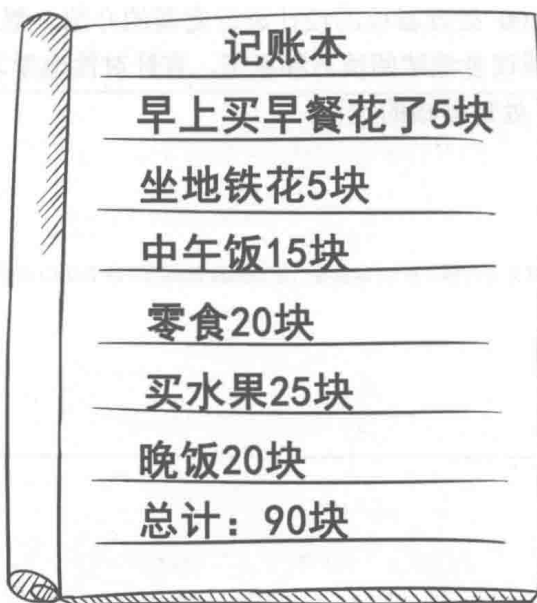 记账本
早上买早餐花了5块
坐地铁花5块
中午饭15块
零食20块
买水果25块
晚饭20块
总计：90块